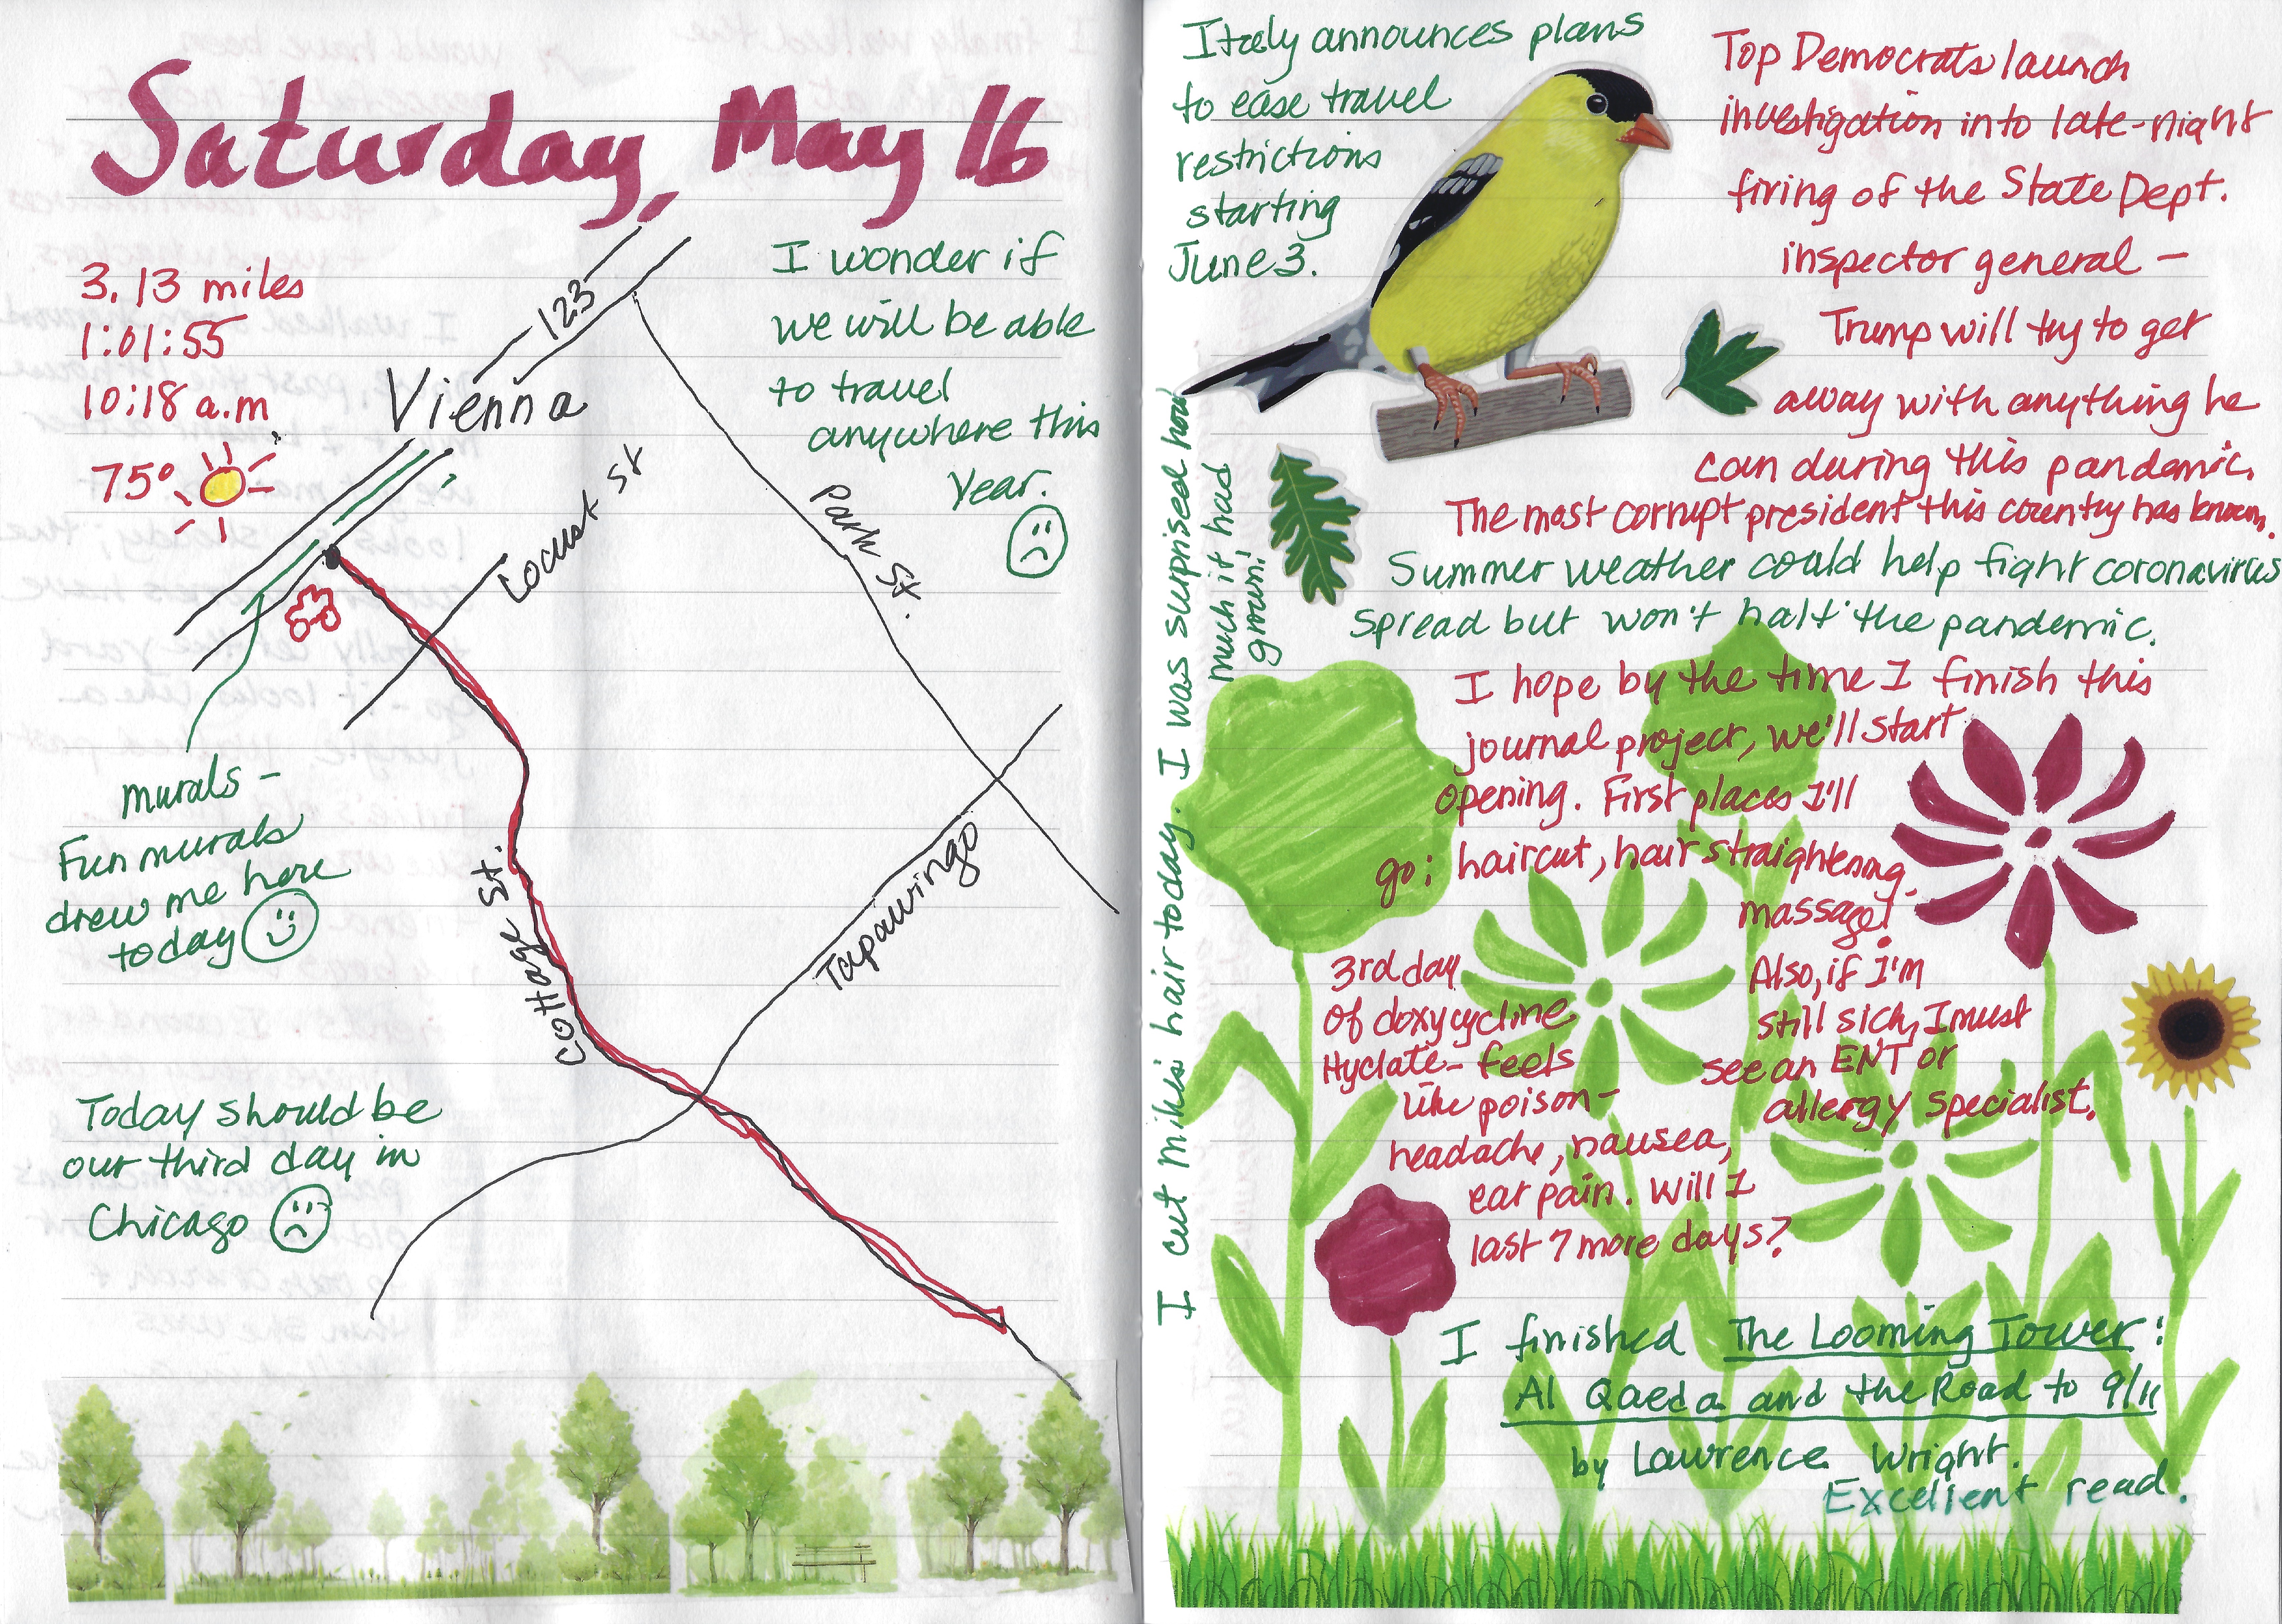 Saturday, May 16
3.13 miles
1:01:55
10:18 a.m
75°
123
Vienna
Locust St
Park St.
Cottage St.
Tapawingo
I wonder if
we will be able
to travel
anywhere this
year.
murals –
Fun murals
drew me here
today
Today should be
our third day in
Chicago
Italy announces plans
to ease travel
restrictions
starting
June 3.
Top Democrats launch
investigation into late-night
firing of the State Dept.
inspector general –
Trump will try to get
away with anything he
can during this pandemic.
The most corrupt president this country has known.
Summer weather could help fight coronavirus
spread but won't halt the pandemic.
I cut Mike's hair today. I was suprised how
much it had
grown!
I hope by the time I finish this
journal project, we'll start
opening. First places I'll
go: haircut, hair straightening,
massage!
Also, if I'm
still sick, I must
see an ENT or
allergy specialist.
3rd day
of doxycycline
Hyclate – feels
like poison –
headache, nausea,
ear pain. Will I
last 7 more days?
I finished The Looming Tower:
Al Qaeda and the Road to 9/11
by Lawrence Wright.
Excellent read.